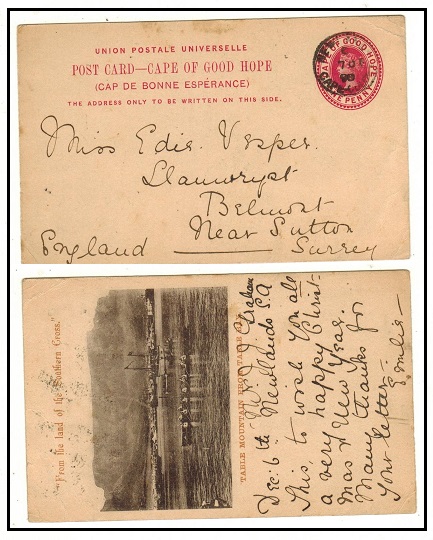 UNION POSTALE UNIVERSELLE
POST CARD—CAPE OF GOOD HOPE
(CAP DE BONNE ESPÉRANCE)
THE ADDRESS ONLY TO BE WRITTEN ON THIS SIDE.
CAPE OF GOOD HOPE
ONE PENNY
Miss Edis Vesper
Llanwryst
Belmont
Near Sutton
England Surrey
"From the land of the Southern Cross."
TABLE MOUNTAIN FROM TABLE BAY
Graham
Dec: 6th Newlands S.A
This, to wish you all
a very happy Christ-
mas & New Year.
Many thanks for
your letter—
Emilie—